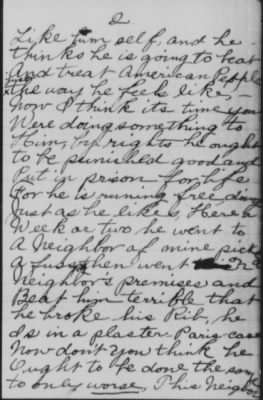 2.
Like him self, and he
thinks he is going to beat
And treat American People
the way he feels like,
Now I think its time you
Were doing something to
Him, by rights he ought
to be punished good and
Put in prison for life
For he is runing free doing
Just as he likes, Here a
Week or two he went to
A Neighbor of mine picks
A fuss then went
Neighbor's premises and
Beat him terrible that
he broke his Rib, he
Is in a plaster-Paris case
Now don't You think he
Ought to be done the same
to only worse, This Neighbor